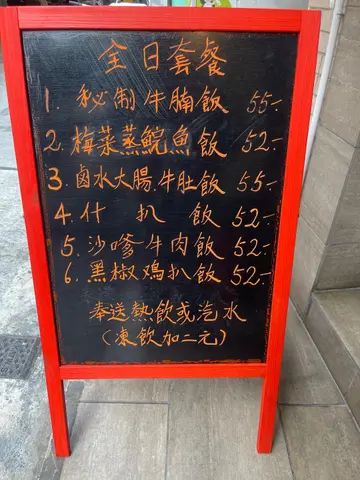 全日套餐
1. 秘制牛腩飯 55-
2. 梅菜蒸鯇魚飯 52.-
3. 鹵水大腸.牛肚飯 55-
4. 什扒飯 52.-
5. 沙嗲牛肉飯 52.-
6. 黑椒鸡扒飯 52.-
奉送熱飲或汽水
(凍飲加二元)